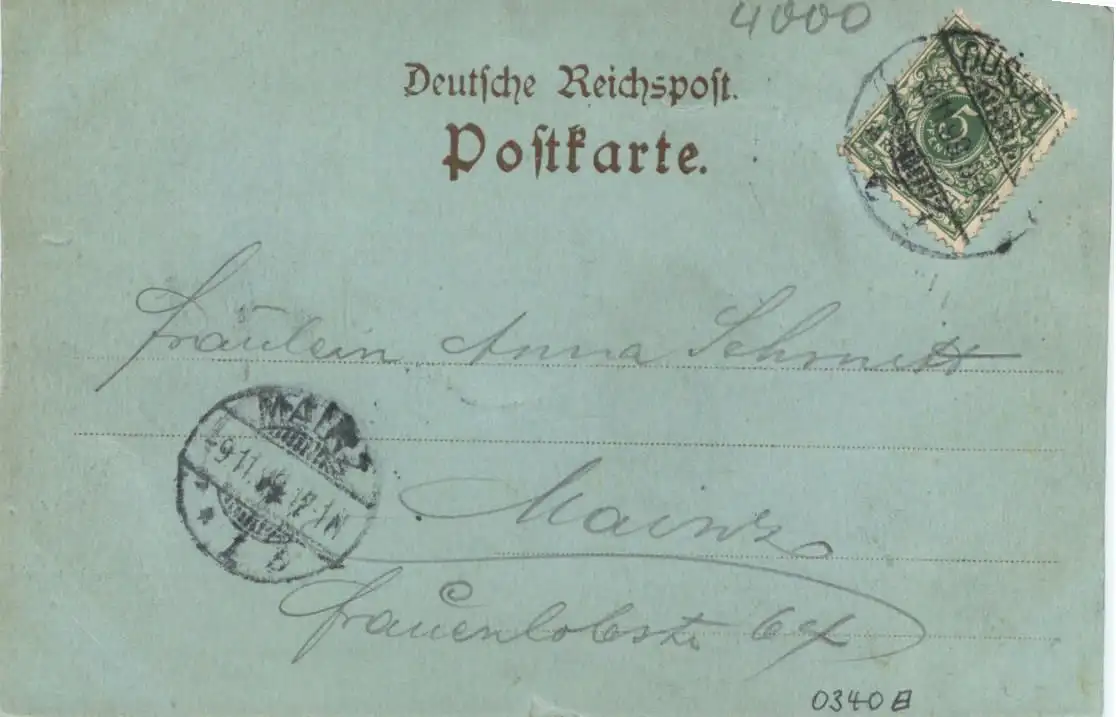 4000
Deutsche Reichspost.
Postkarte.
5
Fräulein Anna Schmitt
MAINZ
9.11. 12-1N
1 b
Mainz
Frauenlobstr. 64
0340